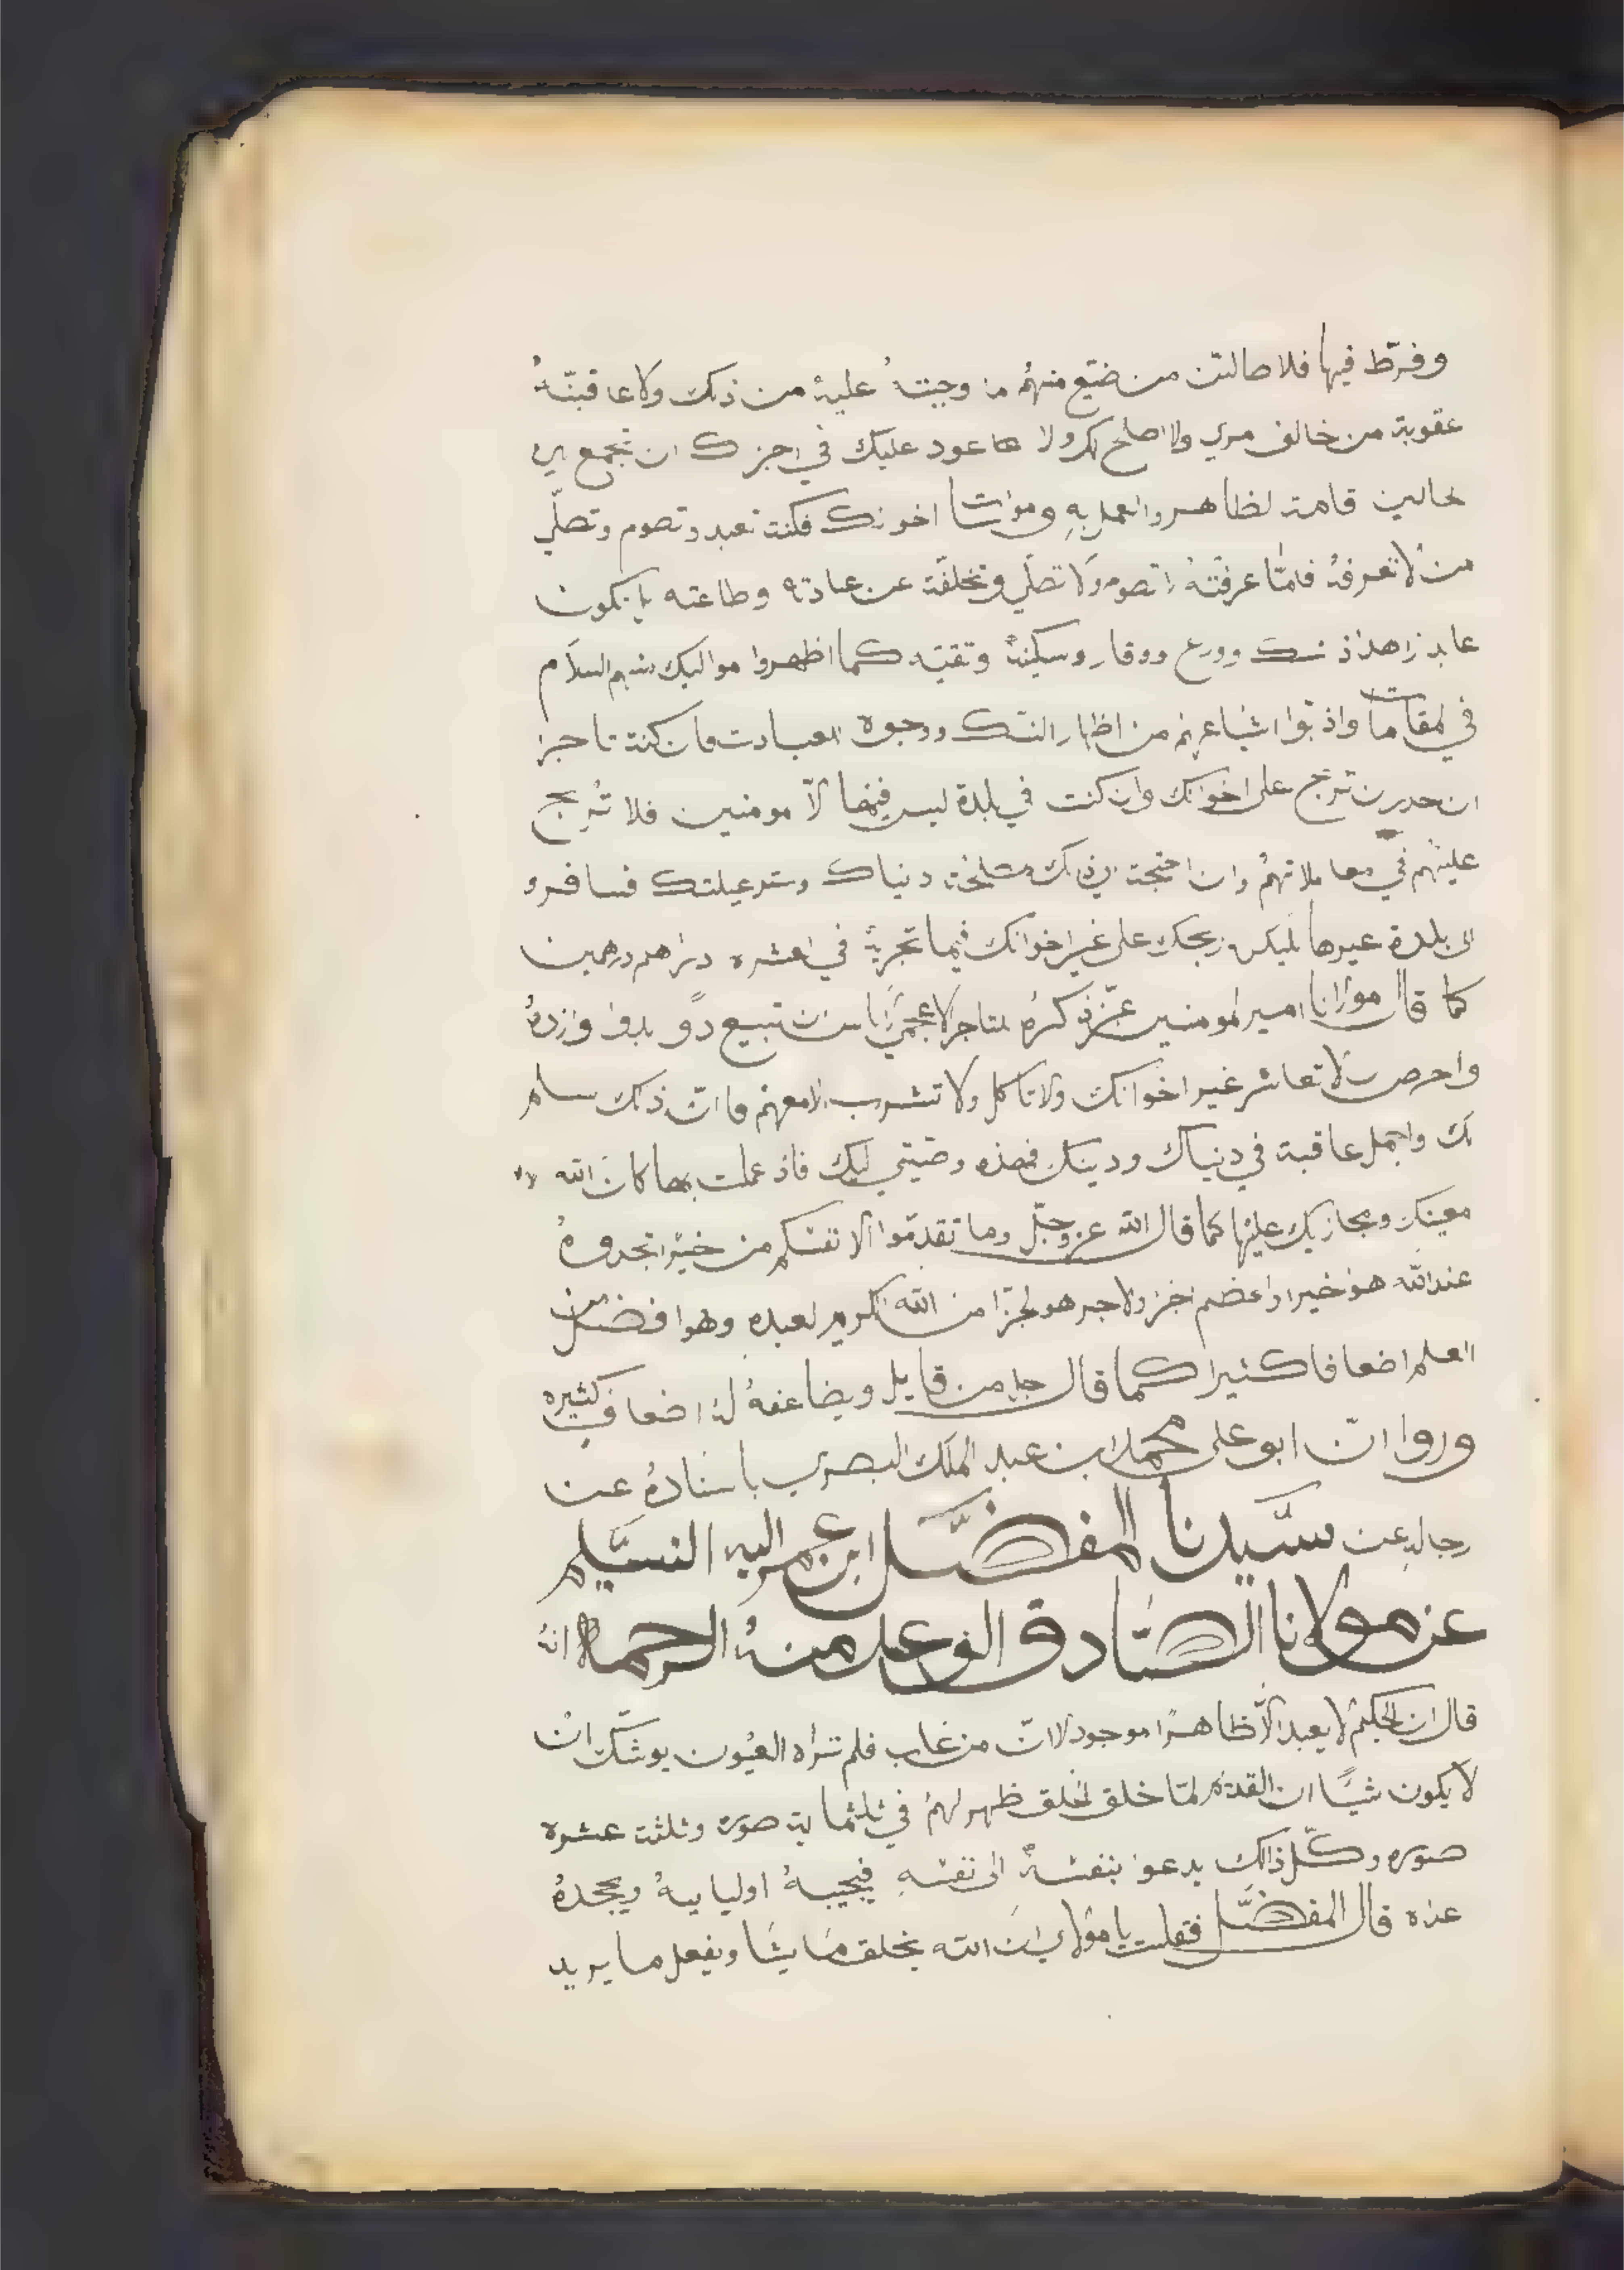 وفرّط فيها فلا صالتن من ضيّع منهم ما وجبته عليه من ذلك ولا عاقبنّه
عقوبة من خالف مري ولا اصلح لك ولا عليك في ان تجمع
قامة لظاهر والعمل به ومواسات اخونك فكنت تعبد وتصوم وتصلّي
من لا تعرفه فامّا عرفته تصوم ولا تصلّي وتخلفّة عن عبادته وطاعته بل تكون
عابد زاهد ذ نسك وورع ووقار وسكينة وتقيّه كما اظهروا مواليك منهم السلام
في لمقامات واذ بوا اشياعهم من اظهار النسك ووجوه العبادت وان كنت تاجرا
ان تربح على اخوانك وان كنت في بلدة ليس فيها الاّ مومنين فلا تربح
عليهم في معاملاتهم وان احتجت الى ذلك مصلحة دنياك وستر عيلتك فسافر و
الى بلدة غيرها ليكن ربحك على غير اخوانك فيما تجر به في العشره دراهم درهمين
كما قال مولانا امير لمومنين عزّ ذكره لتاجر لاعجمي ان تبيع
واحرص لا تعاشر غير اخوانك ولا تاكل ولا تشرب الا معهم فا انّ ذلك سلم
لك واجمل عاقبة في دنياك ودينك فهذه وصيتي ليك فاذ عملت بها كان الله لك
معينك ومجازيك عليها كما قال الله عز وجل وما تقدموا لانفسكم من خير تجدوه
عند الله هو خيرا واعضم اجرا ولاجر هو لجزا من الله الكريم لعبده وهوا فضل من
العلم اضعافا كثيرا كما قال جل من قايل ويضاعفه له اضعاف كثيره
وروا انّ ابو على محمد ابن عبد الملك البصري باسناده عن
رجاله عن سيّدنا المفضّل ابن عمر اليه التسليم
عن مولانا الصّادق الوعد منه الرحمة انه
قال ان الحكيم لا يعبد الاّ ظاهرًا موجود لانّ من غاب فلم تراه العيون يوشك ان
لا يكون شيًا ان القديم لمّا خلق لخلق ظهر لهم في ثلثماية صوره وثلثت عشره
صوره وكلّ ذالك يدعو بنفسه الى نفسه فيجيبه اوليايه ويجحده
عداه قال المفضّل فقلت يا مولاي ان الله يخلق ما يشا ويفعل ما يريد